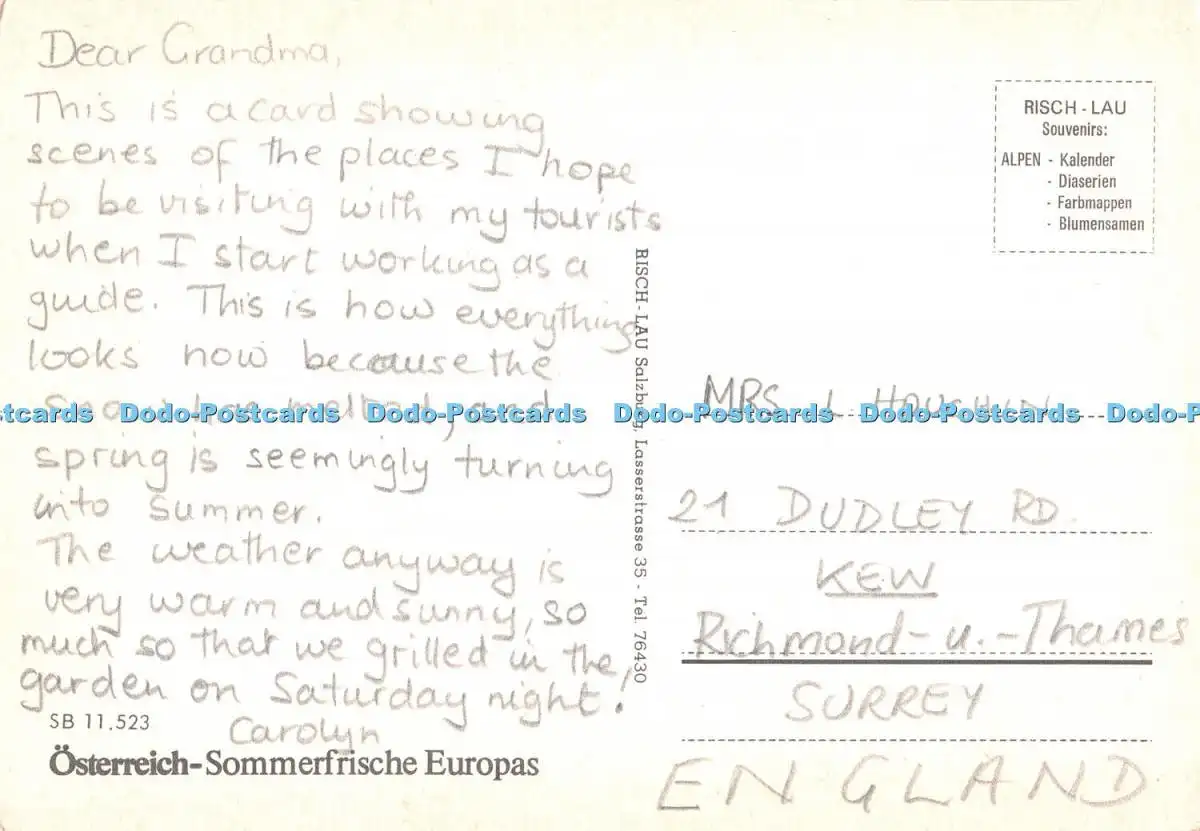 Dear Grandma,
This is a card showing
scenes of the places I hope
to be visiting with my tourists
when I start working as a
guide. This is how everything
looks now because the
snow has melted, and
spring is seemingly turning
into summer.
The weather anyway is
very warm and sunny, so
much so that we grilled in the
garden on Saturday night!
Carolyn
SB 11.523
Österreich-Sommerfrische Europas
RISCH-LAU Salzburg, Lasserstrasse 35 - Tel. 76430
RISCH - LAU
Souvenirs:
ALPEN - Kalender
- Diaserien
- Farbmappen
- Blumensamen
MRS L
21 DUDLEY RD.
KEW
Richmond-u.-Thames
SURREY
ENGLAND
stcards Dodo-Postcards Dodo-Postcards Dodo-Postcards Dodo-Postcards Dodo-P